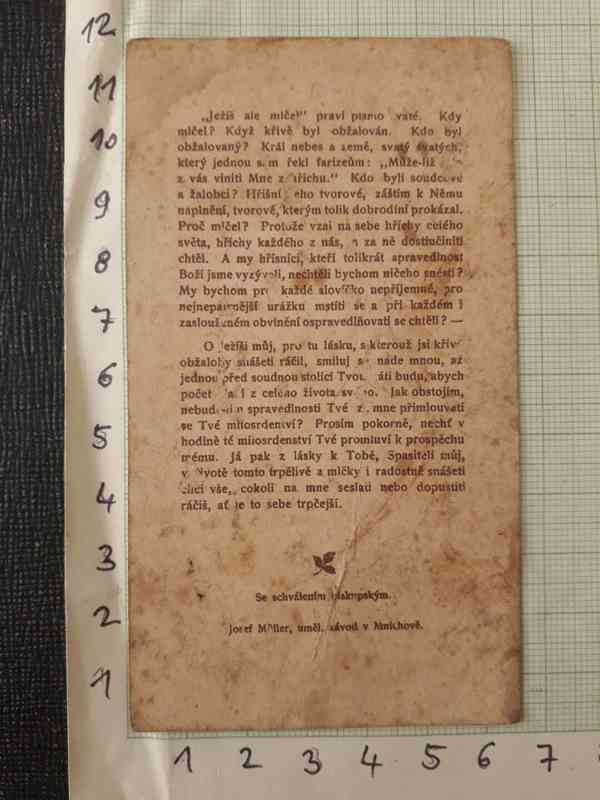 12
11
10
9
8
7
6
5
4
3
2
1
„Ježíš ale mlčel“ praví písmo svaté. Kdy
mlčel? Když křivě byl obžalován. Kdo byl
obžalovaný? Král nebes a země, svatý svatých,
který jednou sám řekl farizeům: „Může-liž
z vás viniti Mne z hříchu.“ Kdo byli soudcové
a žalobci? Hříšní Jeho tvorové, záštím k Němu
naplnění, tvorové, kterým tolik dobrodiní prokázal.
Proč mlčel? Protože vzal na sebe hříchy celého
světa, hříchy každého z nás, a za ně dostiučiniti
chtěl. A my hříšníci, kteří tolikrát spravedlnost
Boží jsme vyzývali, nechtěli bychom ničeho snésti?
My bychom pro každé slovíčko nepříjemné, pro
nejnepatrnější urážku mstíti se a při každém i
zaslouženém obvinění ospravedlňovati se chtěli? —
O Ježíši můj, pro tu lásku, s kterouž jsi křivé
obžaloby snášeti ráčil, smiluj se nade mnou, až
jednou před soudnou stolicí Tvou státi budu, abych
počet z celého života svého. Jak obstojím,
nebude-li spravedlnosti Tvé za mne přimlouvati
se Tvé milosrdenství? Prosím pokorně, nechť v
hodině té milosrdenství Tvé promluví k prospěchu
mému. Já pak z lásky k Tobě, Spasiteli můj,
v životě tomto trpělivě a mlčky i radostně snášeti
chci vše, cokoli na mne seslati nebo dopustiti
ráčíš, ať je to sebe trpčejší.
Se schválením biskupským.
Josef Müller, uměl. závod v Mnichově.
1 2 3 4 5 6 7